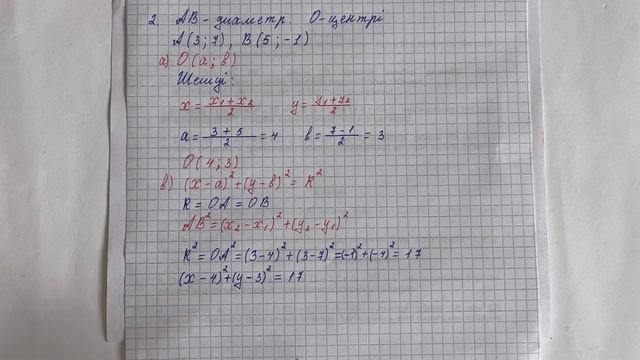 2. AB - диаметр. O-центрі
A(3;7), B(5;-1)
а) O(a;в)
Шешуі:
x = x₁+x₂/2 y = y₁+y₂/2
a = 3+5/2 = 4 в = 7-1/2 = 3
O(4;3)
в) (x-a)²+(y-в)² = R²
R = OA = OB
AB² = (x₂-x₁)²+(y₂-y₁)²
R² = OA² = (3-4)²+(3-7)² = (-1)²+(-4)² = 17
(x-4)²+(y-3)² = 17